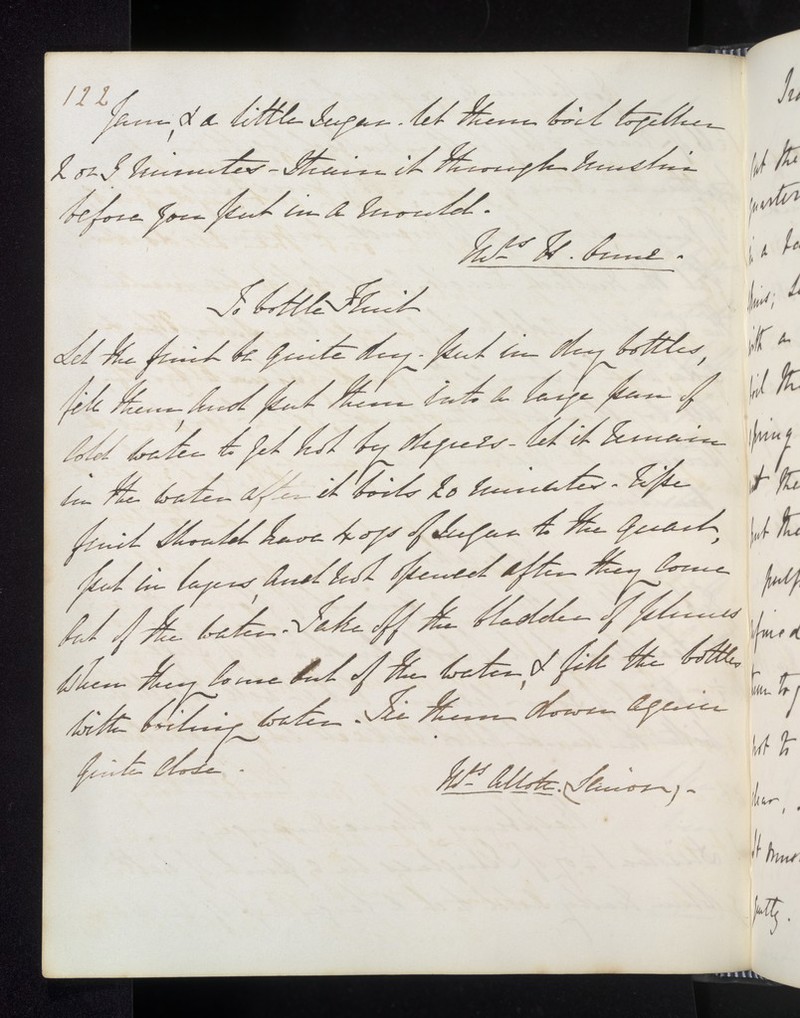 122
Jam, & a little Sugar. let them boil together
2 or 3 minutes - Strain it through muslin
before you put in a mould.
Mrs H. Orme.
To bottle Fruit
Let the fruit be quite dry. put in dry bottles,
fill them, and put them into a large pan of
Cold water to get hot by degrees - let it remain
in the water after it boils 20 minutes. ripe
fruit should have 4 ozs of Sugar to the quart,
put in layers, and not opened after they come
out of the water. Take off the bladder of plums
When they come out of the water, & fill the bottles
with boiling water. Tie them down again
quite close.
Mrs Allott. (Senior) -